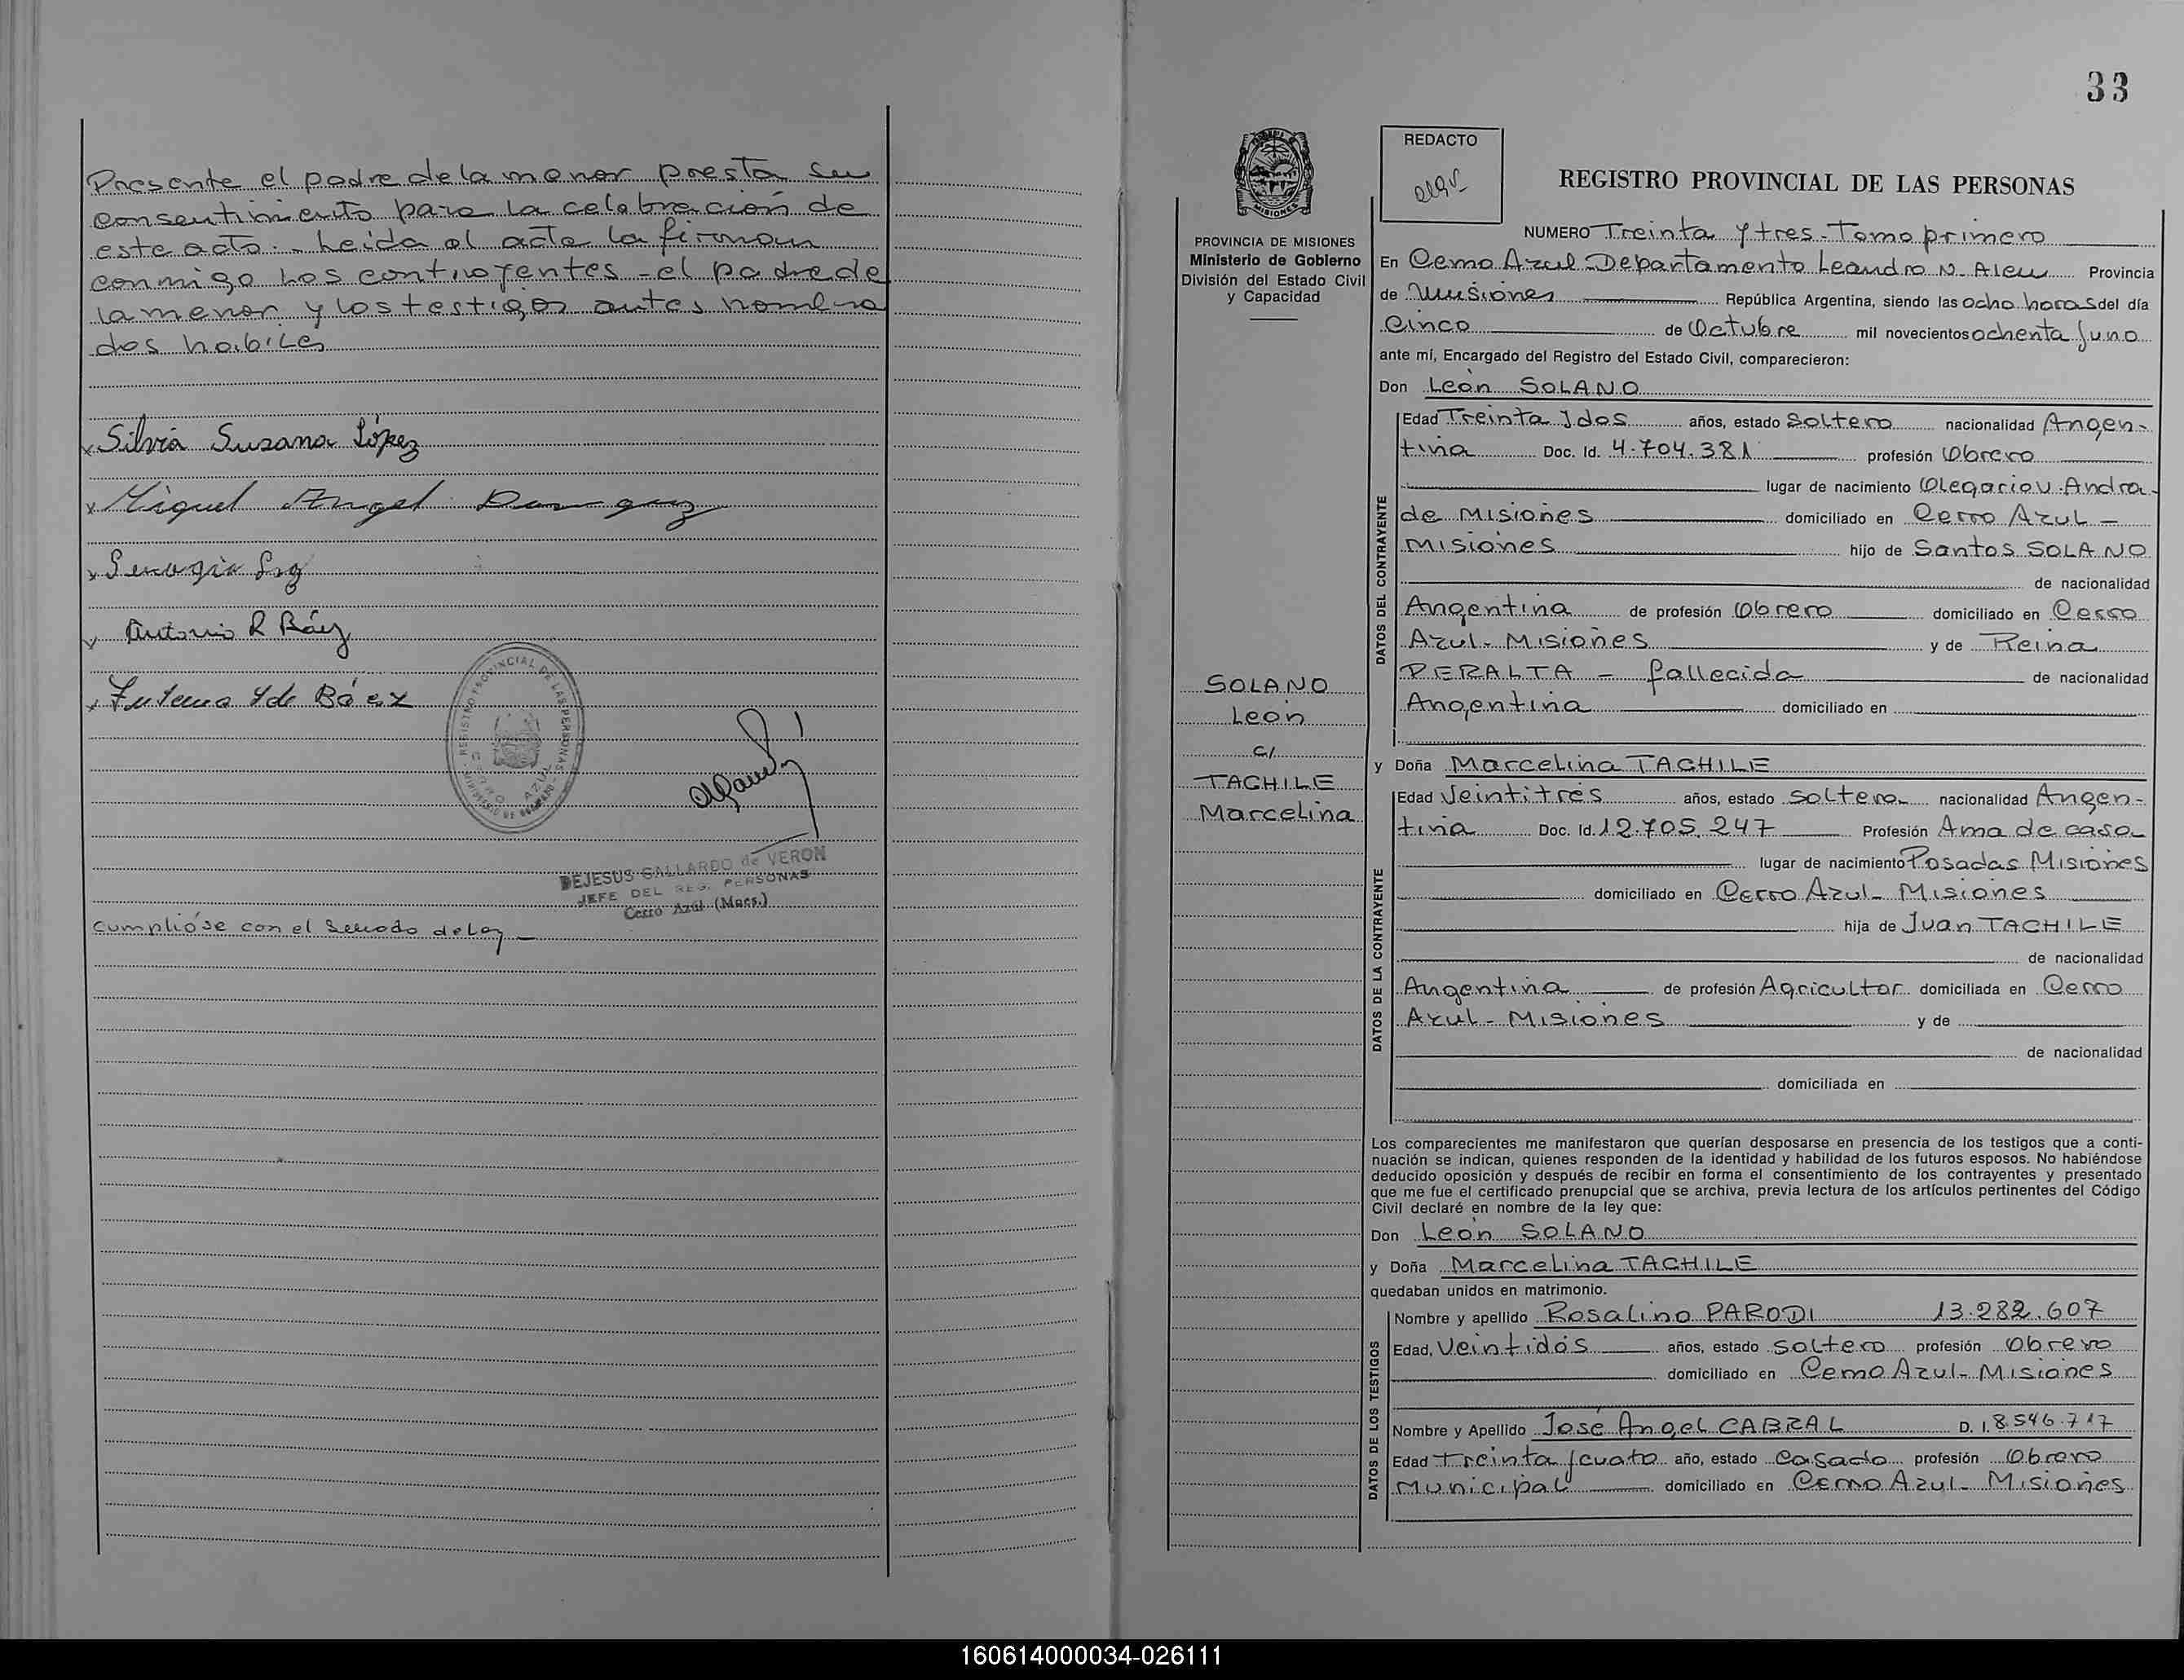 Presente el padre de la menor presta su
consentimiento para la celebración de
este acto. - Leida el acta la firman
conmigo los contrayentes - el padre de
la menor y los testigos antes nombra
dos habiles
x Silvia Susana López
x Miguel Angel
x
x Antonio R Báez
x de Báez
REGISTRO PROVINCIAL DE LAS PERSONAS
CERRO AZUL
DEJESUS GALLARDO de VERON
JEFE DEL REG. PERSONAS
Cerro Azul (Mnes.)
Cumplióse con el Sellado de Ley -
33
MISIONES
PROVINCIA DE MISIONES
Ministerio de Gobierno
División del Estado Civil
y Capacidad
SOLANO
León
c/
TACHILE
Marcelina
REDACTO
REGISTRO PROVINCIAL DE LAS PERSONAS
NUMERO Treinta y tres - Tomo primero
En Cerro Azul - Departamento Leandro N. Alem Provincia
de Misiones República Argentina, siendo las ocho horas del día
Cinco de Octubre mil novecientos ochenta y uno
ante mí, Encargado del Registro del Estado Civil, comparecieron:
Don León SOLANO
DATOS DEL CONTRAYENTE
Edad Treinta y dos años, estado Soltero nacionalidad Argen-
tina Doc. Id. 4.704.381 profesión Obrero
lugar de nacimiento Olegario V. Andra-
de Misiones domiciliado en Cerro Azul -
Misiones hijo de Santos SOLANO
de nacionalidad
Argentina de profesión Obrero domiciliado en Cerro
Azul - Misiones y de Reina
PERALTA - fallecida de nacionalidad
Argentina domiciliado en
y Doña Marcelina TACHILE
DATOS DE LA CONTRAYENTE
Edad Veintitrés años, estado soltera nacionalidad Argen-
tina Doc. Id. 12.705.247 Profesión Ama de casa
lugar de nacimiento Posadas Misiones
domiciliado en Cerro Azul - Misiones
hija de Juan TACHILE
de nacionalidad
Argentina de profesión Agricultor domiciliada en Cerro
Azul - Misiones y de
de nacionalidad
domiciliada en
Los comparecientes me manifestaron que querían desposarse en presencia de los testigos que a conti-
nuación se indican, quienes responden de la identidad y habilidad de los futuros esposos. No habiéndose
deducido oposición y después de recibir en forma el consentimiento de los contrayentes y presentado
que me fue el certificado prenupcial que se archiva, previa lectura de los artículos pertinentes del Código
Civil declaré en nombre de la ley que:
Don León SOLANO
y Doña Marcelina TACHILE
quedaban unidos en matrimonio.
DATOS DE LOS TESTIGOS
Nombre y apellido Rosalino PARODI 13.282.607
Edad, Veintidós años, estado soltero profesión Obrero
domiciliado en Cerro Azul - Misiones
Nombre y Apellido José Angel CABRAL D. I. 8.546.717
Edad Treinta y cuato año, estado Casado profesión Obrero
Municipal domiciliado en Cerro Azul - Misiones
160614000034-026111